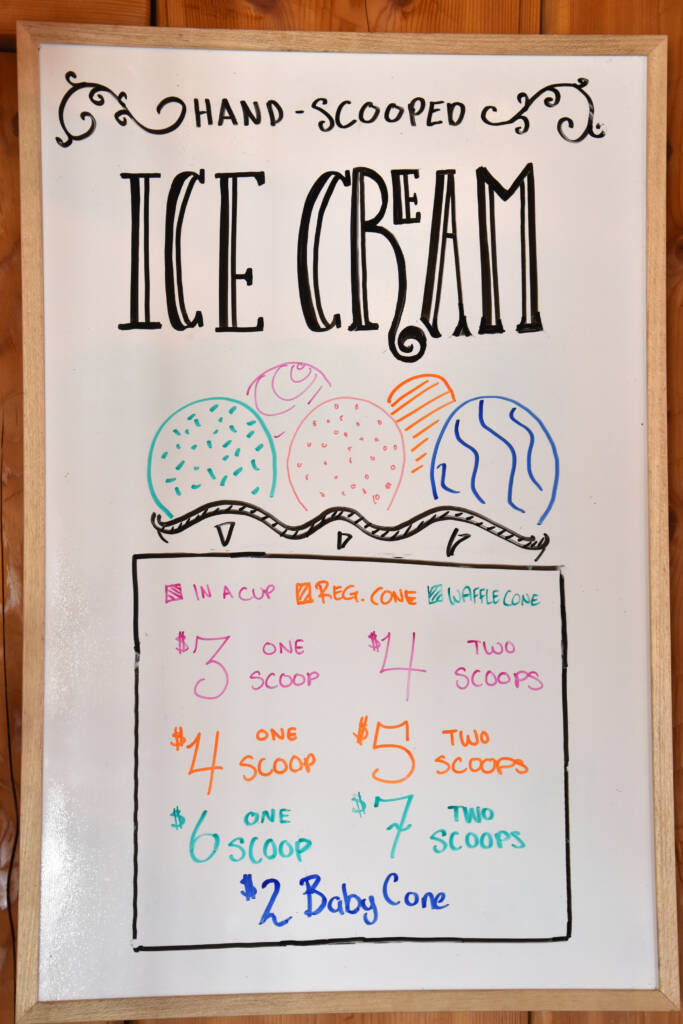 HAND-SCOOPED
ICE CREAM
IN A CUP REG. CONE WAFFLE CONE
$3 ONE SCOOP $4 TWO SCOOPS
$4 ONE SCOOP $5 TWO SCOOPS
$6 ONE SCOOP $7 TWO SCOOPS
$2 Baby Cone